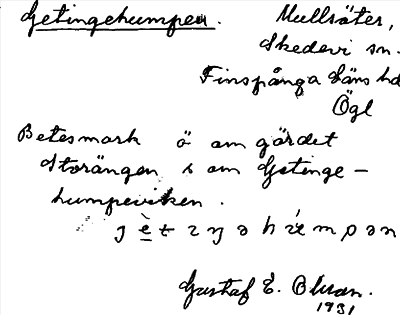 Getingehumpen. Mullsäter,
Skedevi sn.
Finspånga läns hd
Ögl
Betesmark ö om gärdet
Storängen s om Getinge-
humpeviken.
Gustaf E.
1931